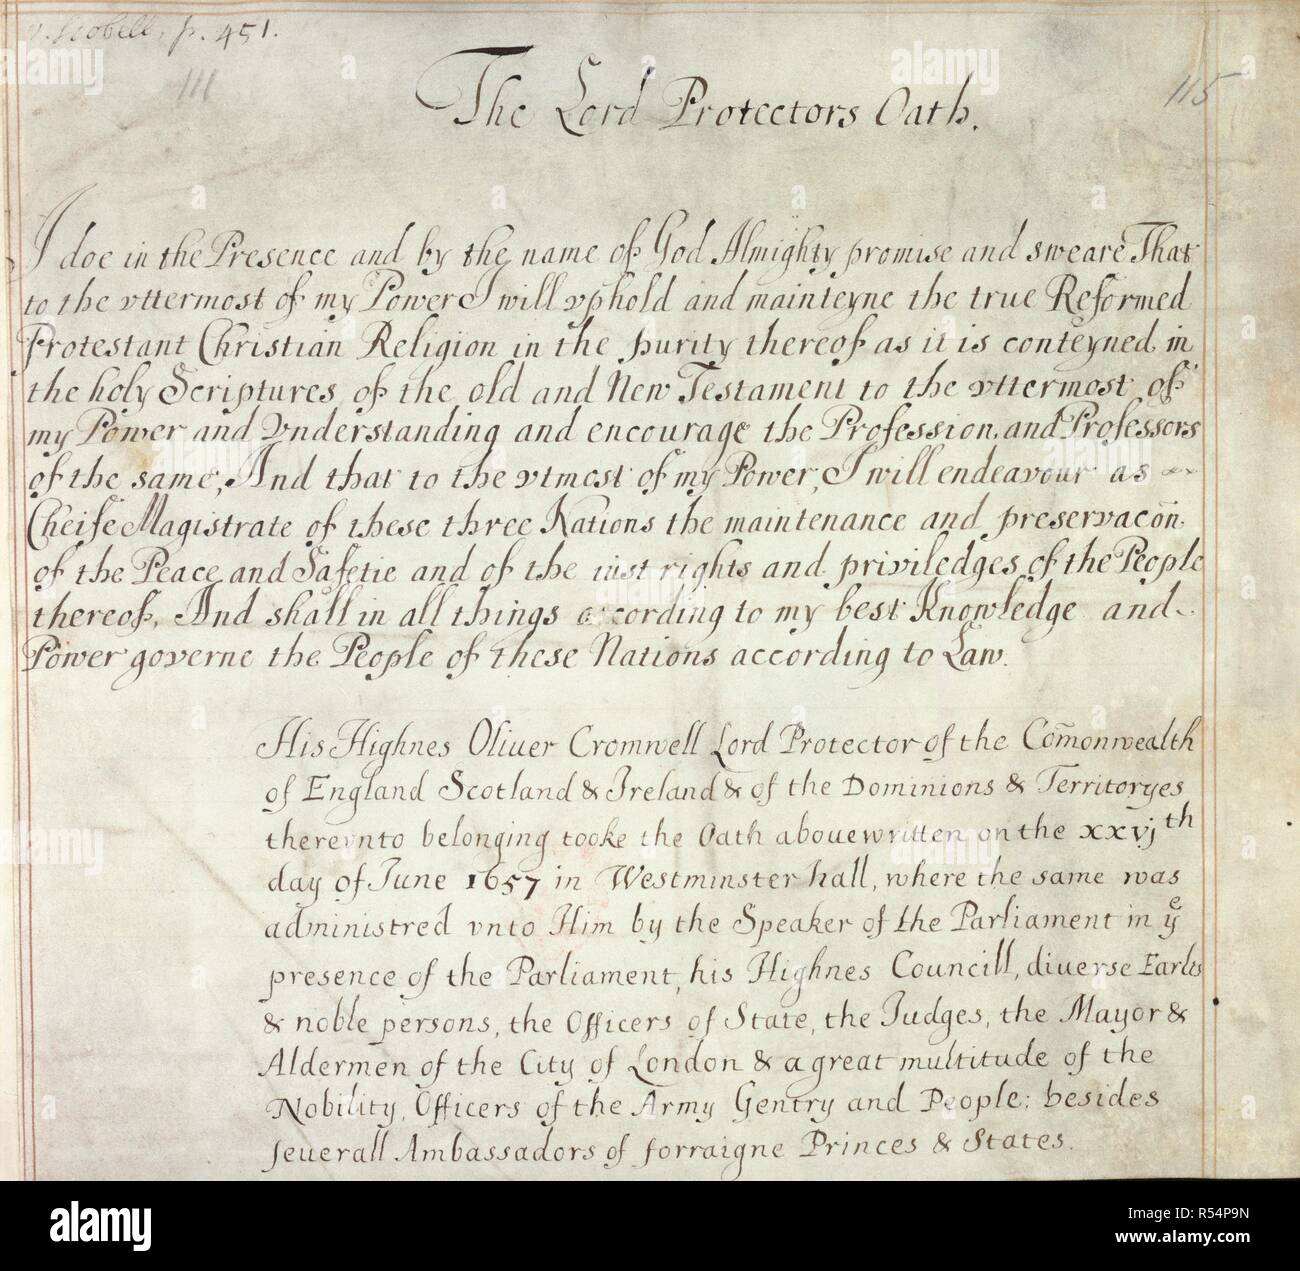 v. Scobell, p. 451.
111
115
The Lord Protectors Oath.
I doe in the Presence and by the name of God Almighty promise and sweare That
to the vttermost of my Power I will vphold and mainteyne the true Reformed
Protestant Christian Religion in the purity thereof as it is conteyned in
the holy Scriptures of the old and New Testament to the vttermost of
my Power and Vnderstanding and encourage the Profession and Professors
of the same, And that to the vtmost of my Power, I will endeavour as
Cheife Magistrate of these three Nations the maintenance and preservacõn
of the Peace and Safetie and of the iust rights and priviledges of the People
thereof, And shall in all things according to my best Knowledge and
Power governe the People of these Nations according to Law.
His Highnes Oliuer Cromwell Lord Protector of the Com̃onwealth
of England Scotland & Ireland & of the Dominions & Territoryes
therevnto belonging tooke the Oath aboue written on the xxvjth
day of June 1657 in Westminster hall, where the same was
administred vnto Him by the Speaker of the Parliament in ye
presence of the Parliament, his Highnes Councill, diuerse Earles
& noble persons, the Officers of State, the Judges, the Mayor &
Aldermen of the City of London & a great multitude of the
Nobility, Officers of the Army Gentry and People: besides
seuerall Ambassadors of forraigne Princes & States.
alamy
Image ID: R54P9N
www.alamy.com